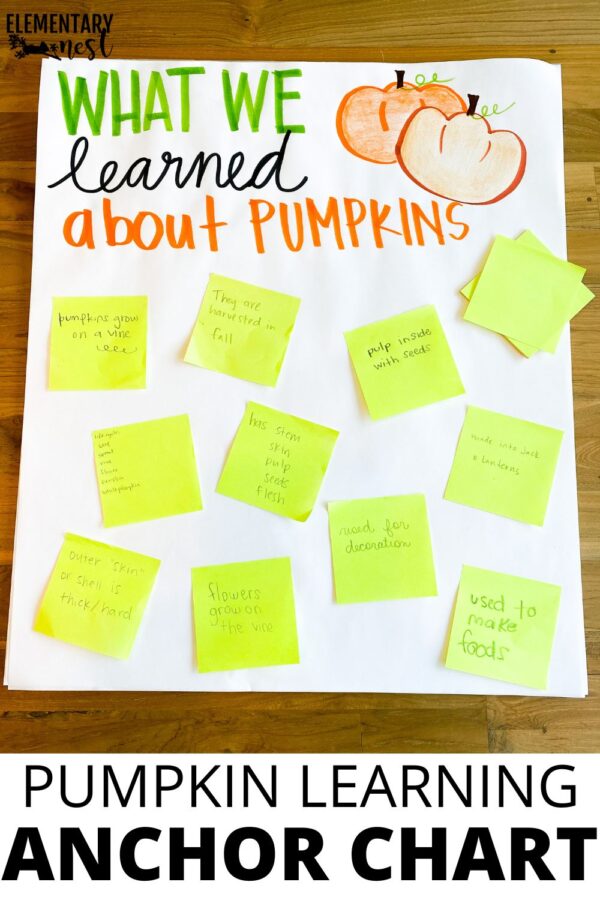 ELEMENTARY
nest
WHAT WE
learned
about PUMPKINS
pumpkins grow
on a vine
They are
harvested in
fall
pulp inside
with seeds
life cycle:
seed
sprout
vine
flower
pumpkin
has stem
skin
pulp
seeds
flesh
made into Jack
o lanterns
used for
decoration
outer "skin"
or shell is
thick/hard
flowers
grow on
the vine
used to
make
foods
PUMPKIN LEARNING
ANCHOR CHART